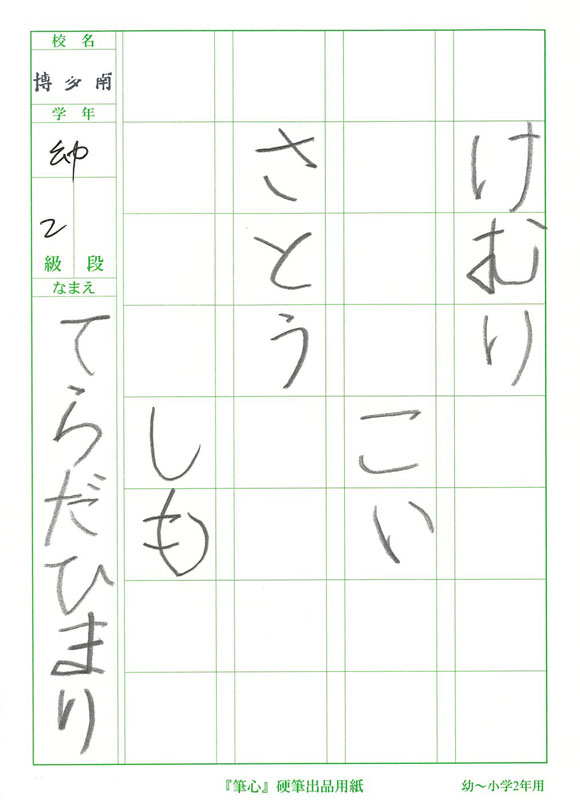 けむり
こい
さとう
しも
校名
博多南
学年
幼
2
級 段
なまえ
てらだひまり
『筆心』硬筆出品用紙
幼～小学2年用